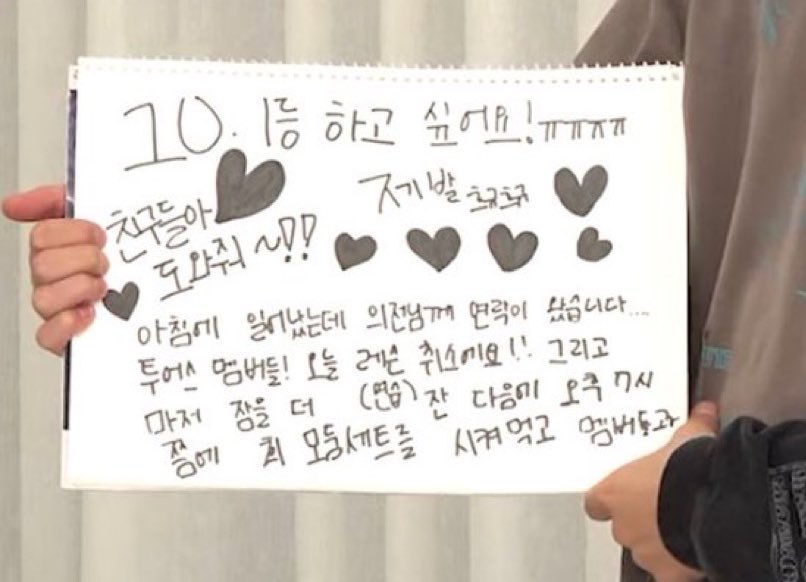 10. 1등 하고 싶어요! ㅠㅠㅈㅠ
제발 ㅎㅠㅎㅠ
친구들아
도와줘 ~!!
아침에 일어났는데 의전님께 연락이 왔습니다...
투어스 멤버들! 오늘 레슨 취소에요!! 그리고
마저 잠을 더 (연습) 잔 다음에 오후 7시
쯤에 회 모둠세트를 시켜먹고 멤버들과